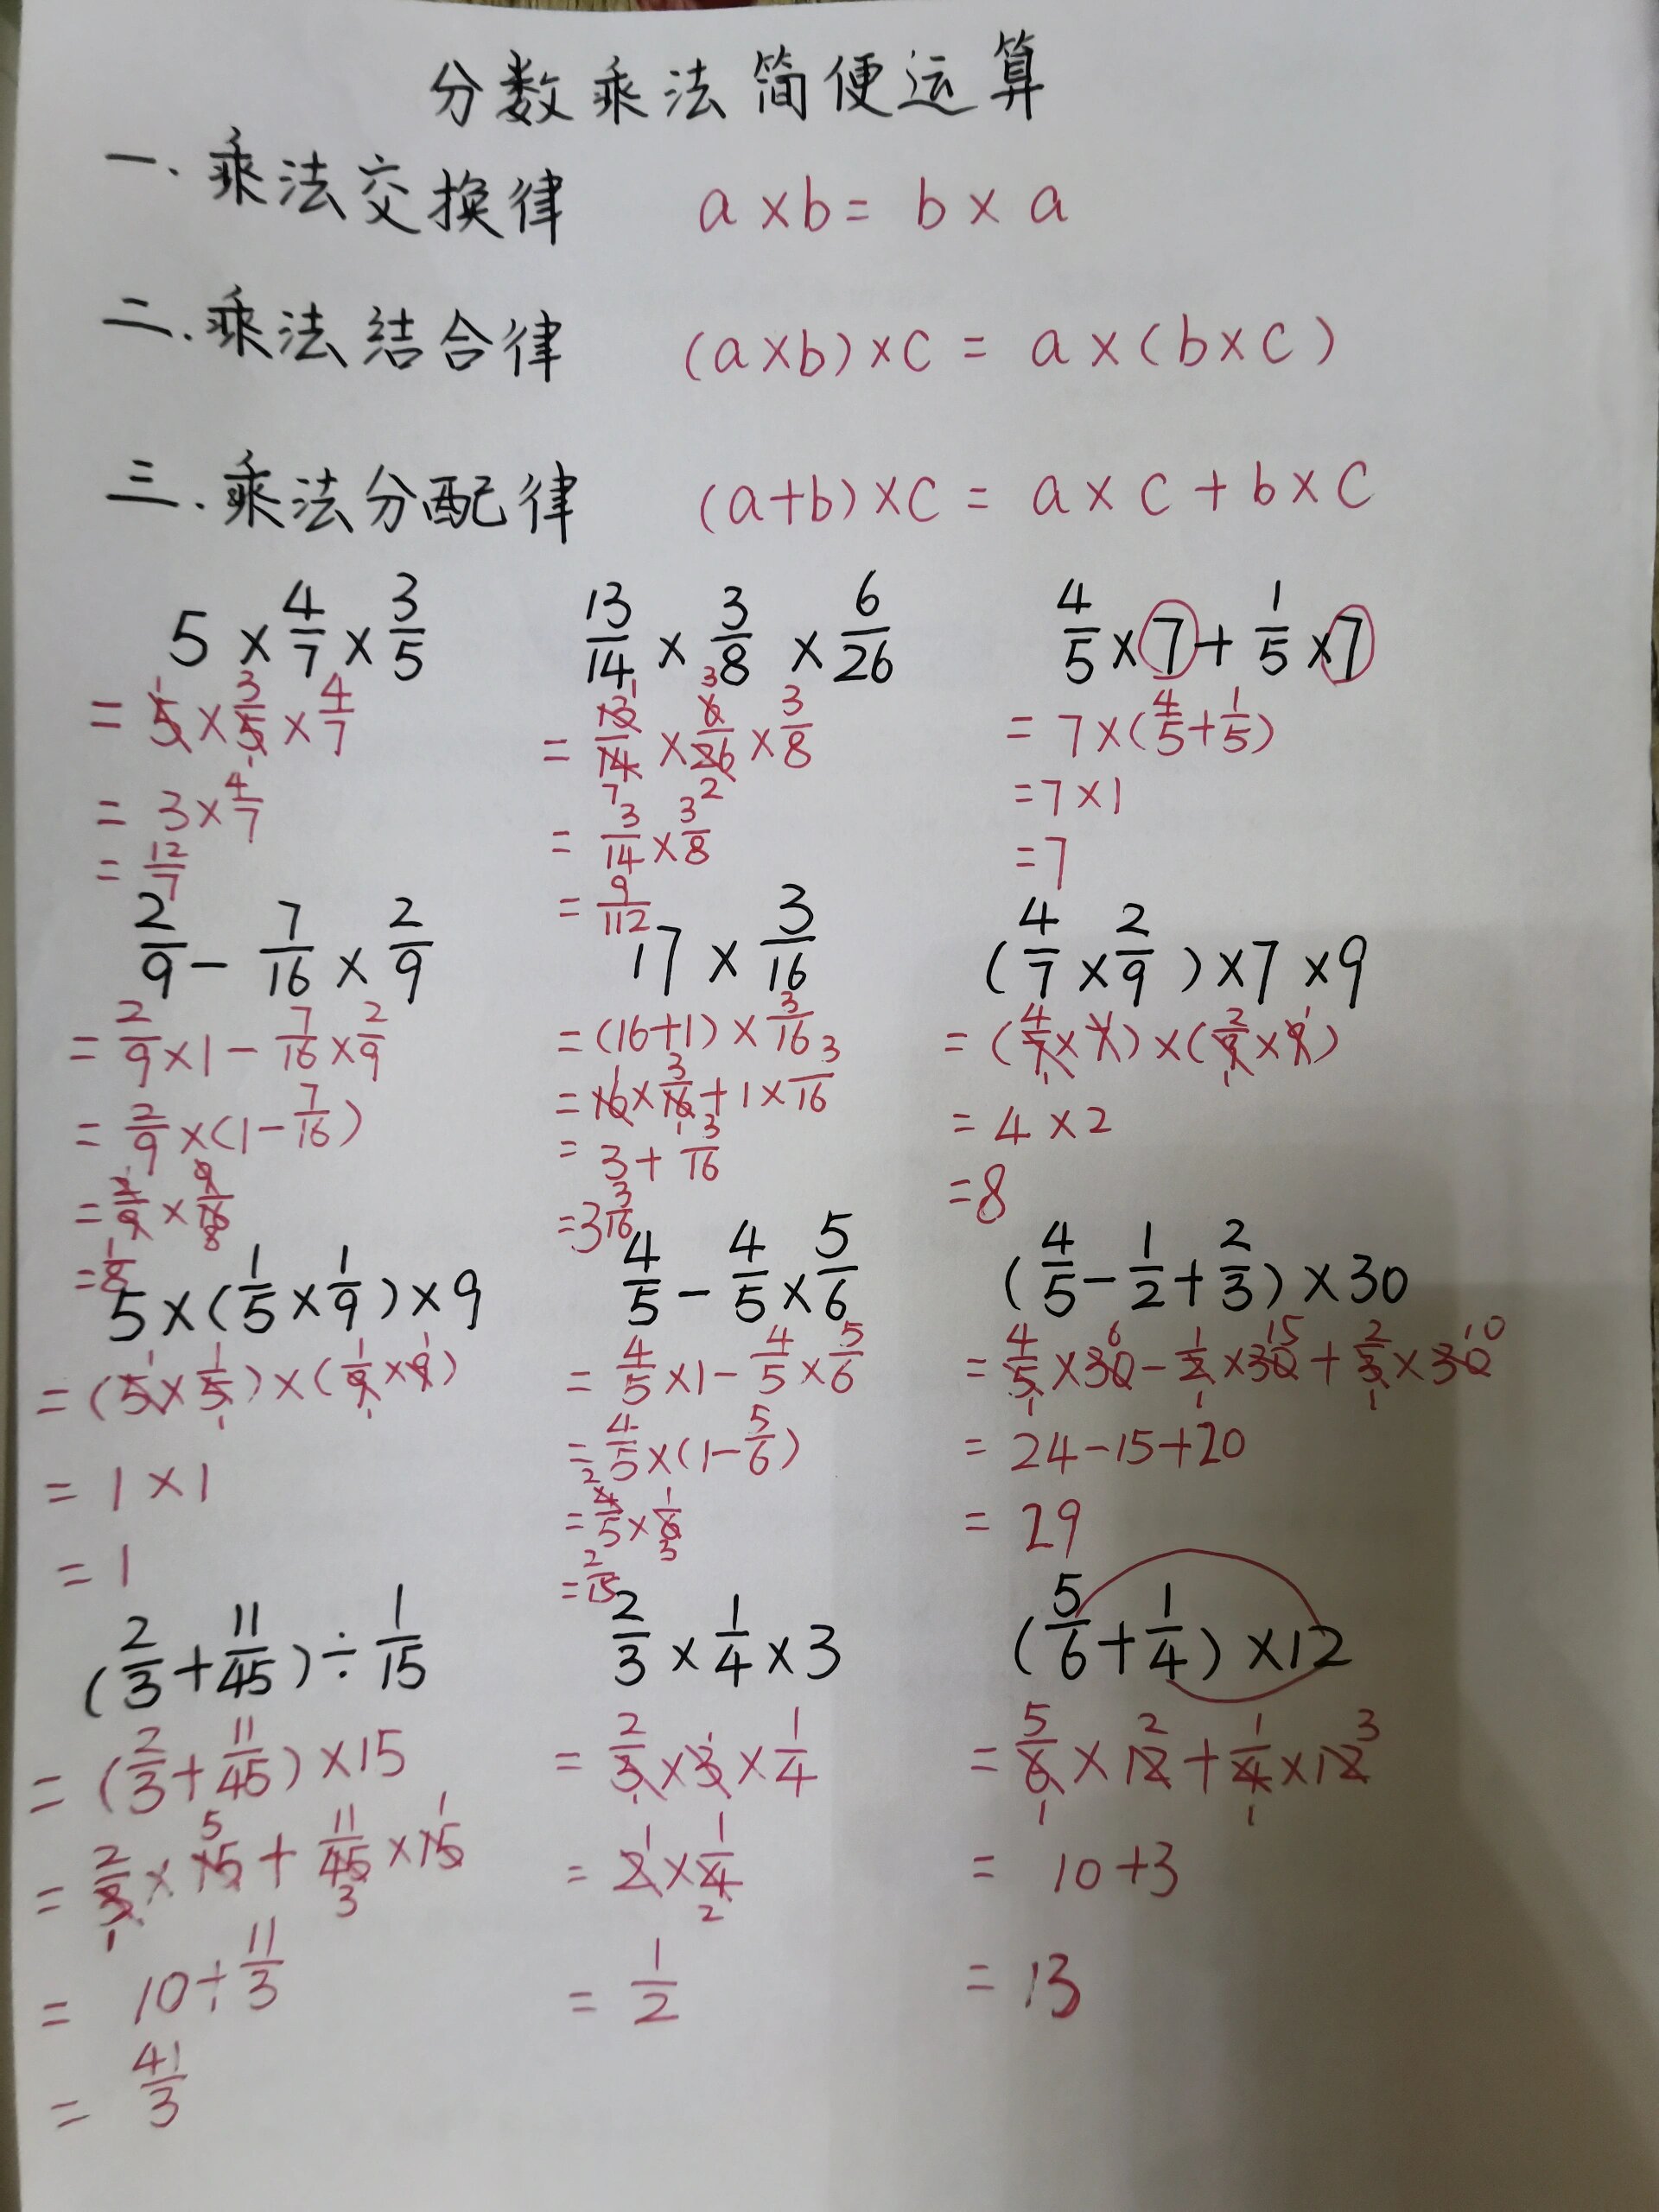 分数乘法简便运算
一.乘法交换律 a×b=b×a
二.乘法结合律 (a×b)×c=a×(b×c)
三.乘法分配律 (a+b)×c=a×c+b×c
5×4/7×3/5
=5×3/5×4/7
=3×4/7
=12/7
13/14×3/8×6/26
=13/14×6/26×3/8
=3/14×3/8
=9/112
4/5×7+1/5×7
=7×(4/5+1/5)
=7×1
=7
2/9-7/16×2/9
=2/9×1-7/16×2/9
=2/9×(1-7/16)
=2/9×9/16
=1/8
17×3/16
=(16+1)×3/16
=16×3/16+1×3/16
=3+3/16
=3 3/16
(4/7×2/9)×7×9
=(4/7×7)×(2/9×9)
=4×2
=8
5×(1/5×1/9)×9
=(5×1/5)×(1/9×9)
=1×1
=1
4/5-4/5×5/6
=4/5×1-4/5×5/6
=4/5×(1-5/6)
=4/5×1/6
=2/15
(4/5-1/2+2/3)×30
=4/5×30-1/2×30+2/3×30
=24-15+20
=29
(2/3+11/45)÷1/15
=(2/3+11/45)×15
=2/3×15+11/45×15
=10+11/3
=41/3
2/3×1/4×3
=2/3×3×1/4
=2×1/4
=1/2
(5/6+1/4)×12
=5/6×12+1/4×12
=10+3
=13